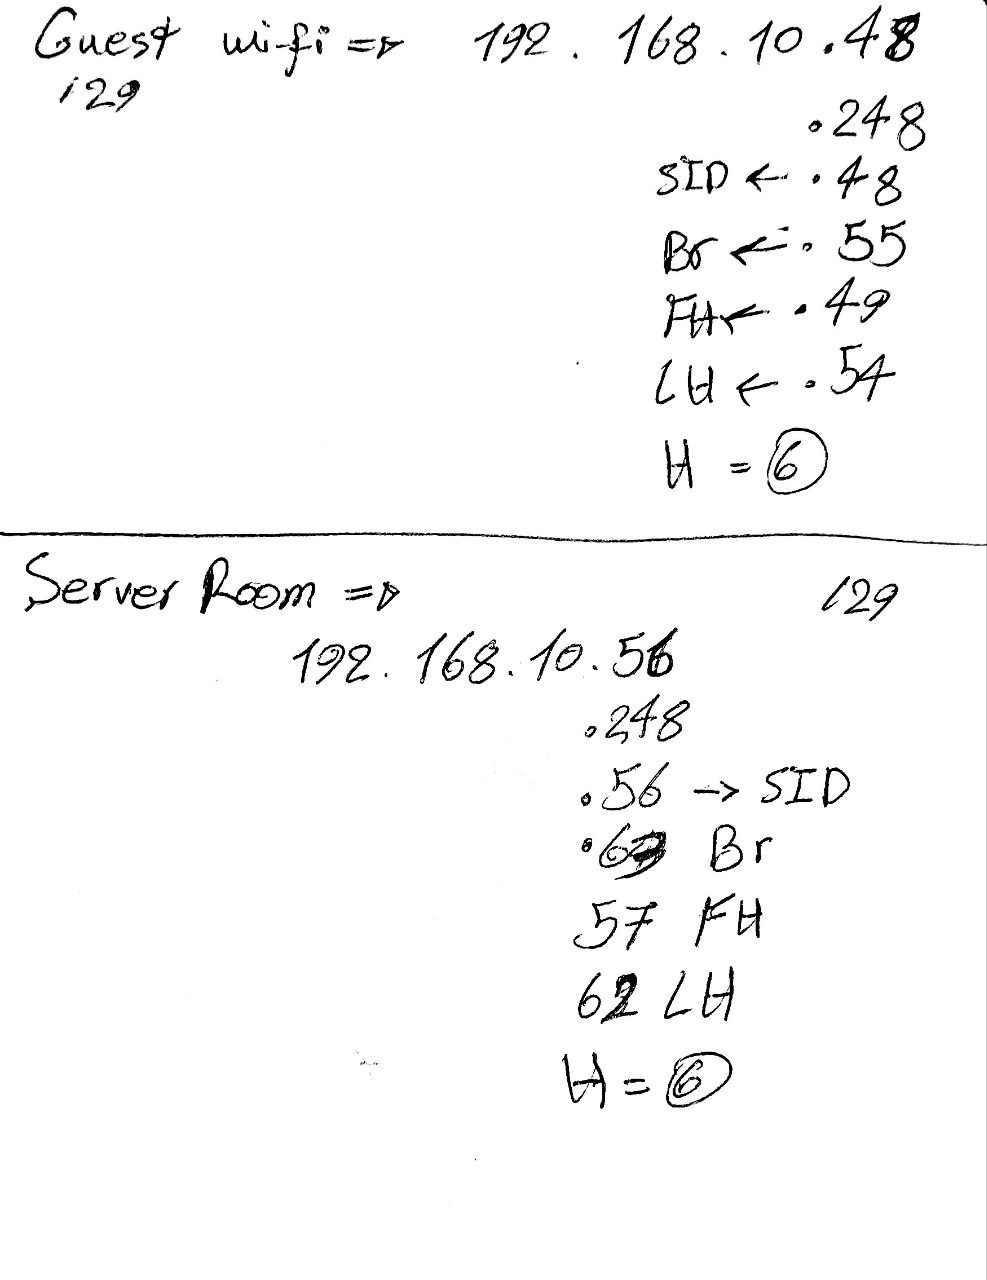 Guest wifi => 192.168.10.48
/29
.248
SID ← .48
Br ← . 55
FH ← .49
LH ← .54
H = 6
Server Room =>
/29
192.168.10.56
.248
.56 → SID
.63 Br
57 FH
62 LH
H = 6